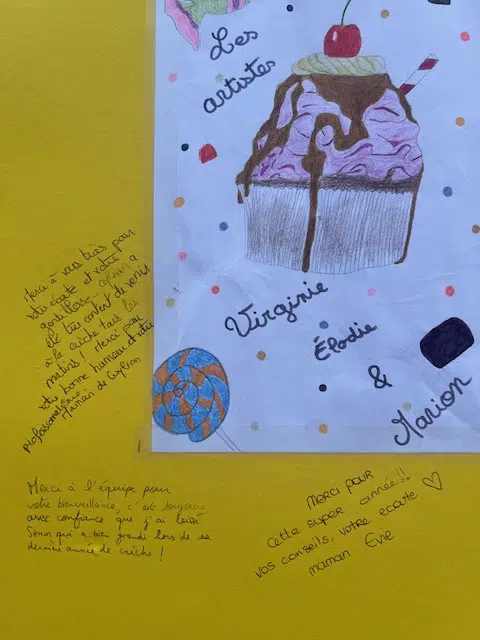 Les
artistes
Virginie
Élodie
&
Marion
Merci à vous trois pour
votre écoute et votre
gentillesse. a
été très content de venir
à la crèche tous les
matins ! Merci pour
votre bonne humeur et votre
professionnalisme
Maman de
Merci à l'équipe pour
votre bienveillance, c'est toujours
avec confiance que j'ai laissé
Simon qui a bien grandi lors de sa
dernière année de crèche !
Merci pour
cette super année !!
vos conseils, votre écoute ♡
maman Evie